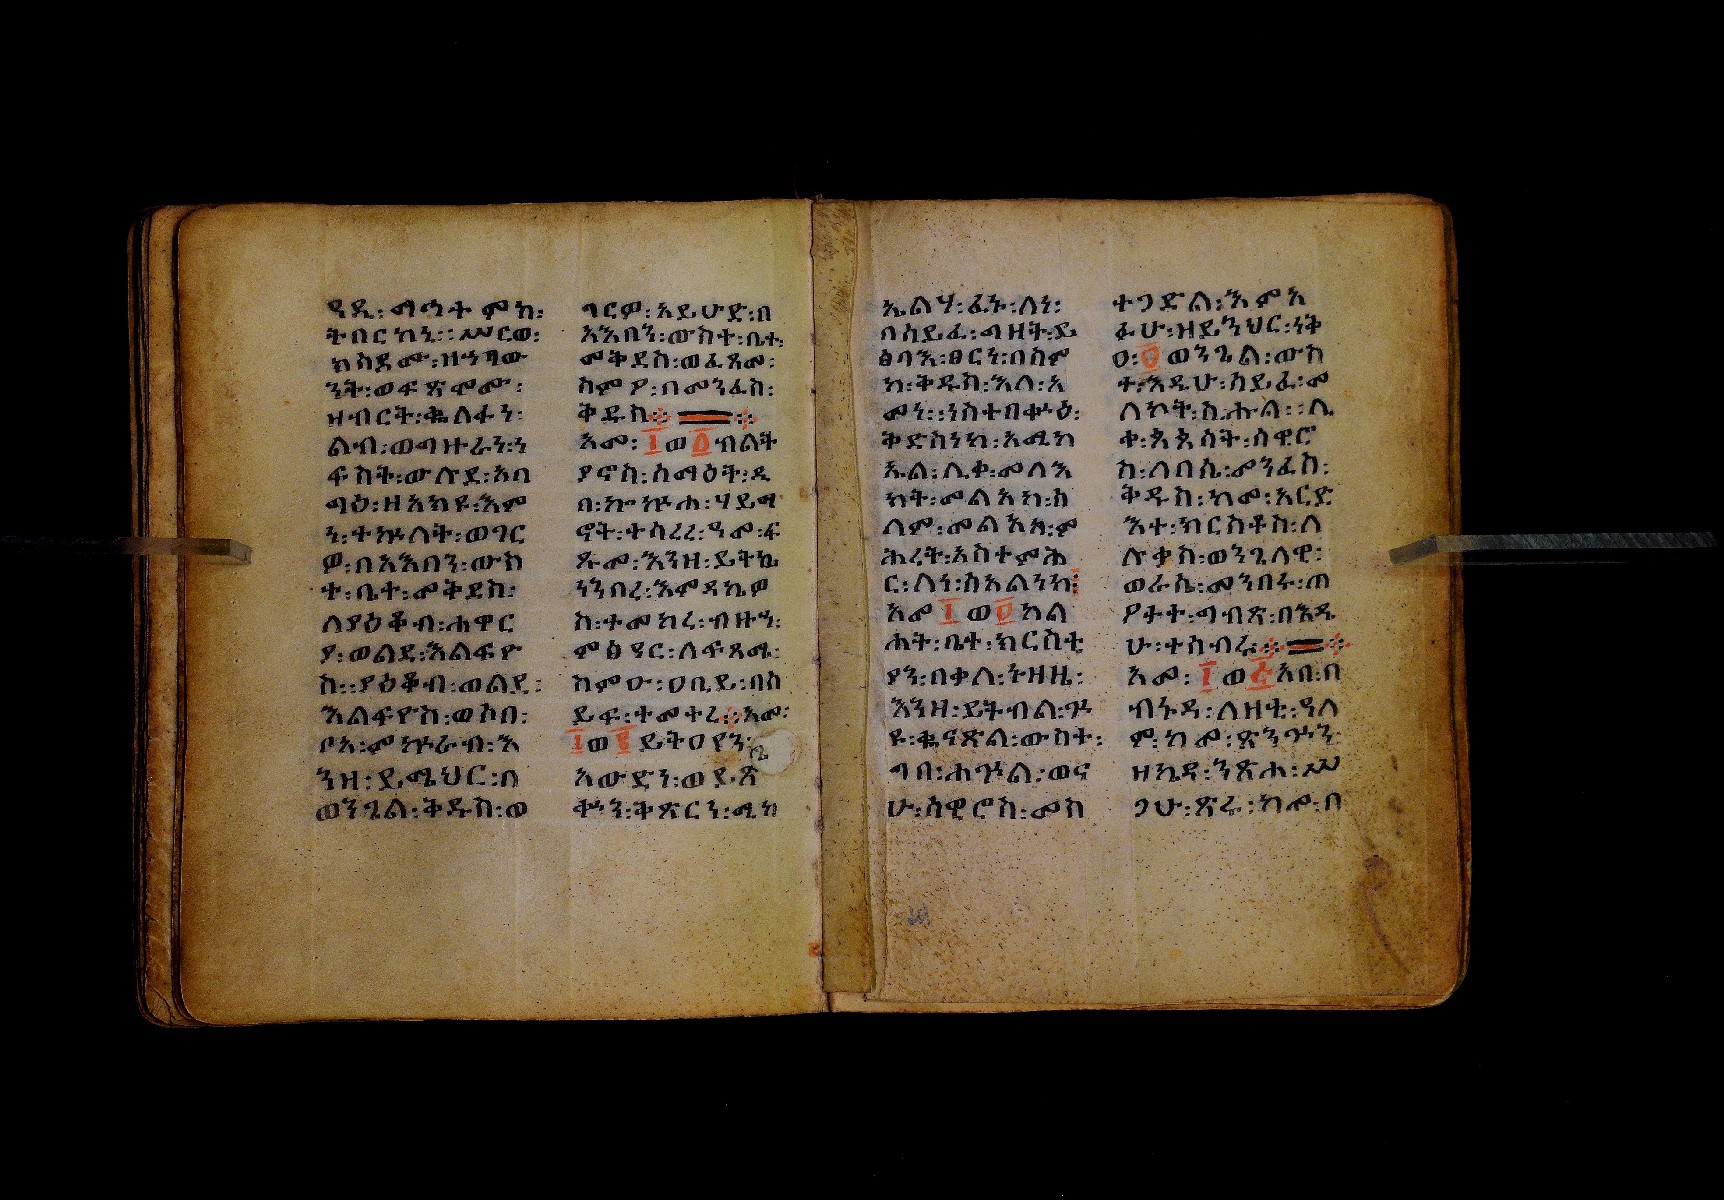 ዓዲ፡ ማኅተ ምከ፡
ትበርከኒ፡፡ሥርወ፡
ንት፡ወፍጽሞሙ፡
ዘብርት፡ቈለፋነ፡
ልብ፡ወማዙራነ፡ነ
ፍስት፡ውሉደ፡አበ
ማዕ፡ዘአክዩ፡እም
ነ፡ተኵላት፡ወገር
ዎ፡በአእበን፡ውስ
ተ፡ቤተ፡መቅደስ፡
ለያዕቆብ፡ሐዋር
ያ፡ወልደ፡እልፍዮ
ስ፡፡ያዕቆብ፡ወልደ፡
እልፍዮስ፡ወኮበ፡
ቦአ፡ምኵራብ፡እ
ንዘ፡ይሜህር፡በ
ወንጌል፡ቅዱስ፡ወ
ገርዎ፡አይሁድ፡በ
አእበን፡ውስተ፡ቤተ፡
መቅደስ፡ወፈጸመ፡
ስምዖ፡በመንፈስ፡
ቅዱስ፡
አመ፡ ፲ ወ ፬ ብልት
ያኖስ፡ሰማዕት፡ዲ
በ፡ኰኵሐ፡ሃይማ
ኖት፡ተሳረረ፡ዓመ፡ፍ
ጹመ፡እንዘ፡ይትኬ
ነን በረ፡እምዳኬዎ
ስ፡ተመከረ፡ብዙኀ፡
ምፅዳር፡ለፍጻሜ፡
ስምዑ፡ዐቢይ፡በሰ
ይፍ፡ተመተረ፡ አመ፡
፲ወ ይትዐየን፡
አውድነ፡ወይጽ
ቍነ፡ቅጽርነ፡ሚካ
ኤልሃ፡ፈኑ፡ለነ፡
በሰይፈ፡ማዘት፡ይ
ፅባእ፡ፀርነ፡በስም
ከ፡ቅዱስ፡እለ፡አ
መነ፡፡ንስተበቍዕ፡
ቅድስነከ፡አሚካ
ኤል፡ሊቀ፡መላእ
ክት፡መልአከ፡ሰ
ላም፡መልአከ፡ም
ሕረት፡አስተምሕ
ር፡ለነ፡ስአልንከ፡
አመ ፲ ወ ካል
ሐት፡ቤተ፡ክርስቲ
ያን፡በቀለ፡ትዘዜ፡
እንዘ፡ይትብል፡ጕ
ዩ፡ቈናጽል፡ውስት፡
ግበ፡ሐጕል፡ወና
ሁ፡ሰዊሮስ፡መስ
ተጋድል፡እምአ
ፈሁ፡ዘይንህር፡ነቅ
ዐ፡ ወንጌል፡ውስ
ተ፡እዴሁ፡ሰይፈ፡መ
ለኮት፡ስሑል፡፡ሊ
ቀ፡ጳጳሳት፡ሰዊሮ
ስ፡ለበሴ፡መንፈስ፡
ቅዱስ፡ከመ፡አርድ
እተ፡ክርስቶስ፡ለ
ሉቃስ፡ወንጌላዊ፡
ወራሴ፡መንበሩ፡ጠ
ዖተተ፡ግብጽ፡በእዴ
ሁ፡ተሰብሩ፡
አመ፡ ፲ ወ አበ፡በ
ብኑዳ፡ለዘቲ፡ዓለ
ም፡ከመ፡ጽንዓነ
ዘኬዳ፡ንጽሐ፡ሥ
ጋሁ፡ጽሩ፡ከመ፡በ